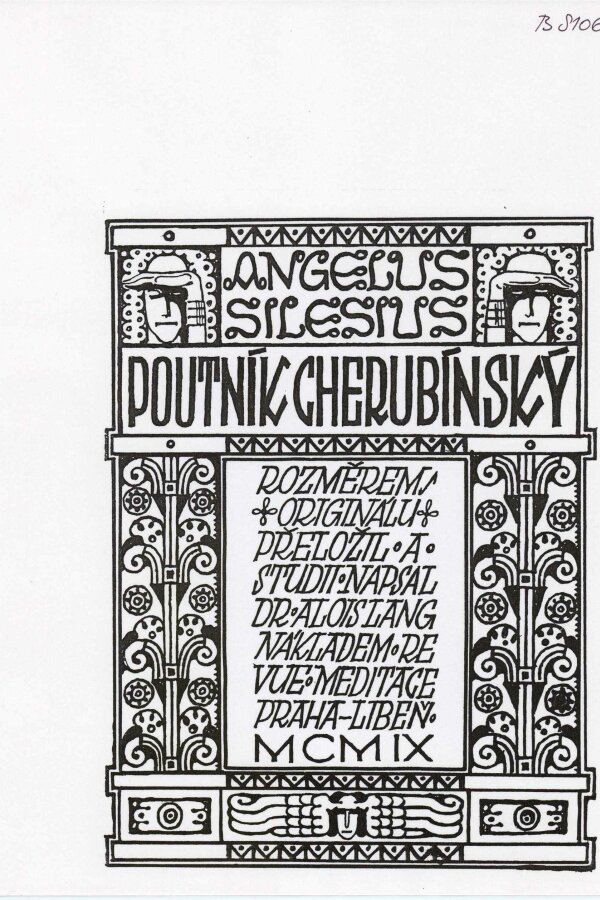 B 8106
ANGELUS
SILESIUS
POUTNÍK CHERUBÍNSKÝ
ROZMĚREM
ORIGINÁLU
PŘELOŽIL • A •
STUDII • NAPSAL
DR • ALOIS LANG
NÁKLADEM • RE
VUE • MEDITACE
PRAHA–LIBEŇ •
MCMIX